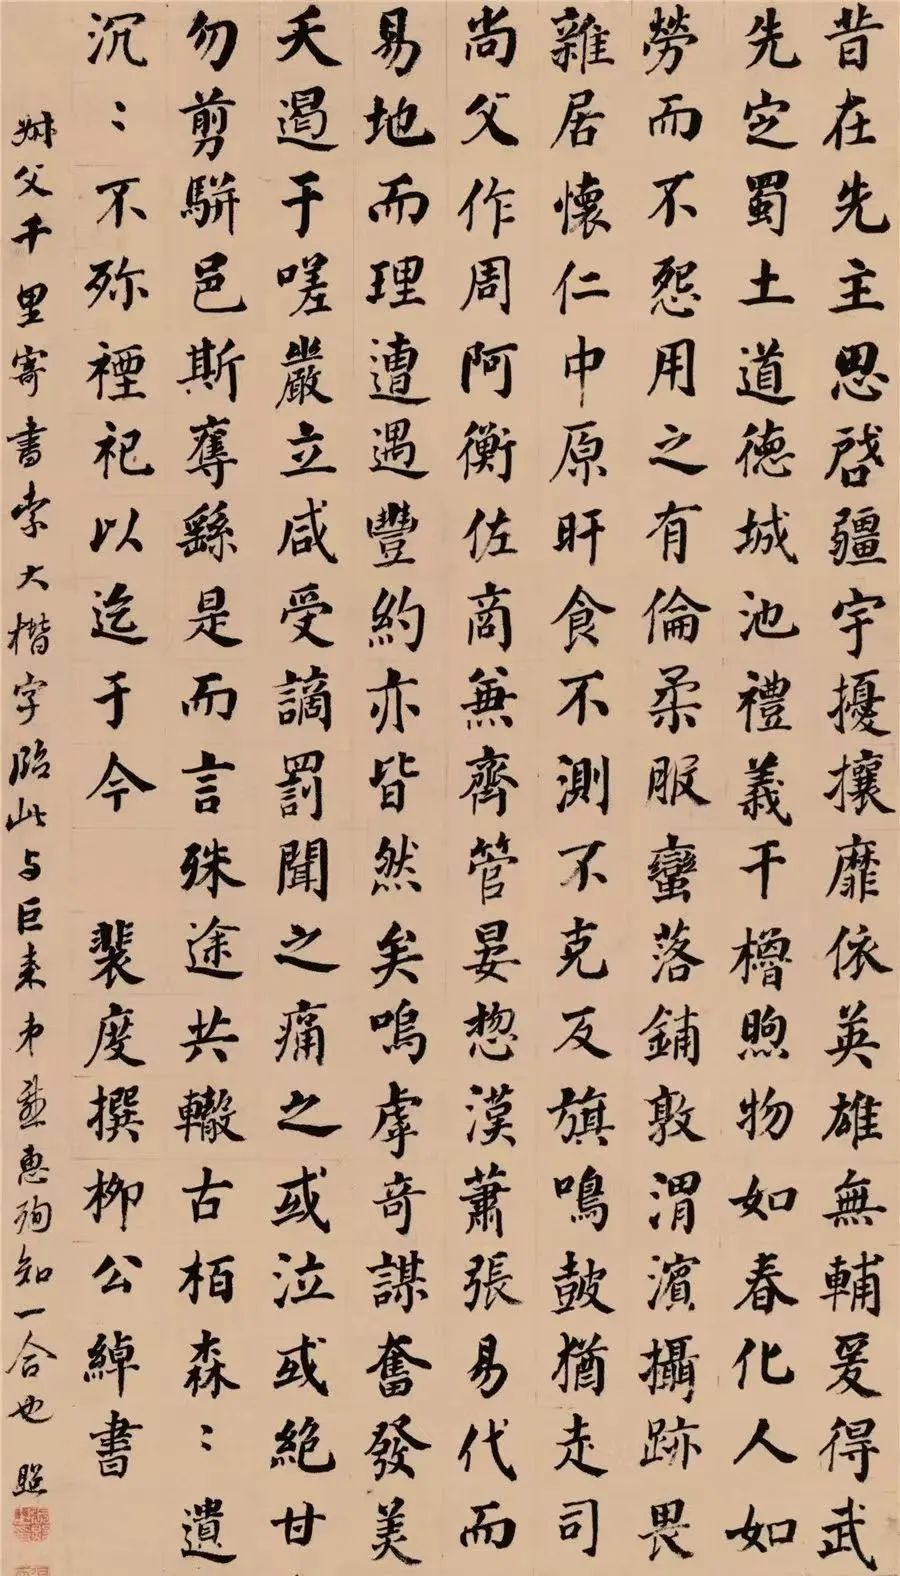 昔在先主思啓疆宇擾攘靡依英雄無輔爰得武
先定蜀土道德城池禮義干櫓煦物如春化人如
勞而不怨用之有倫柔服蠻落鋪敦渭濱攝跡畏
雜居懷仁中原旰食不測不克反旗鳴鼓猶走司
尚父作周阿衡佐商兼齊管晏惣漢蕭張易代而
易地而理遭遇豐約亦皆然矣嗚虖奇謀奮發美
夭遏于嗟嚴立咸受謫罰聞之痛之或泣或絕甘
勿剪駢邑斯奪繇是而言殊途共轍古栢森:遺
沉:不殄禋祀以迄于今 裴度撰柳公綽書
姊父千里寄書索大楷字臨此与巨来弟惠殉知一合也 照